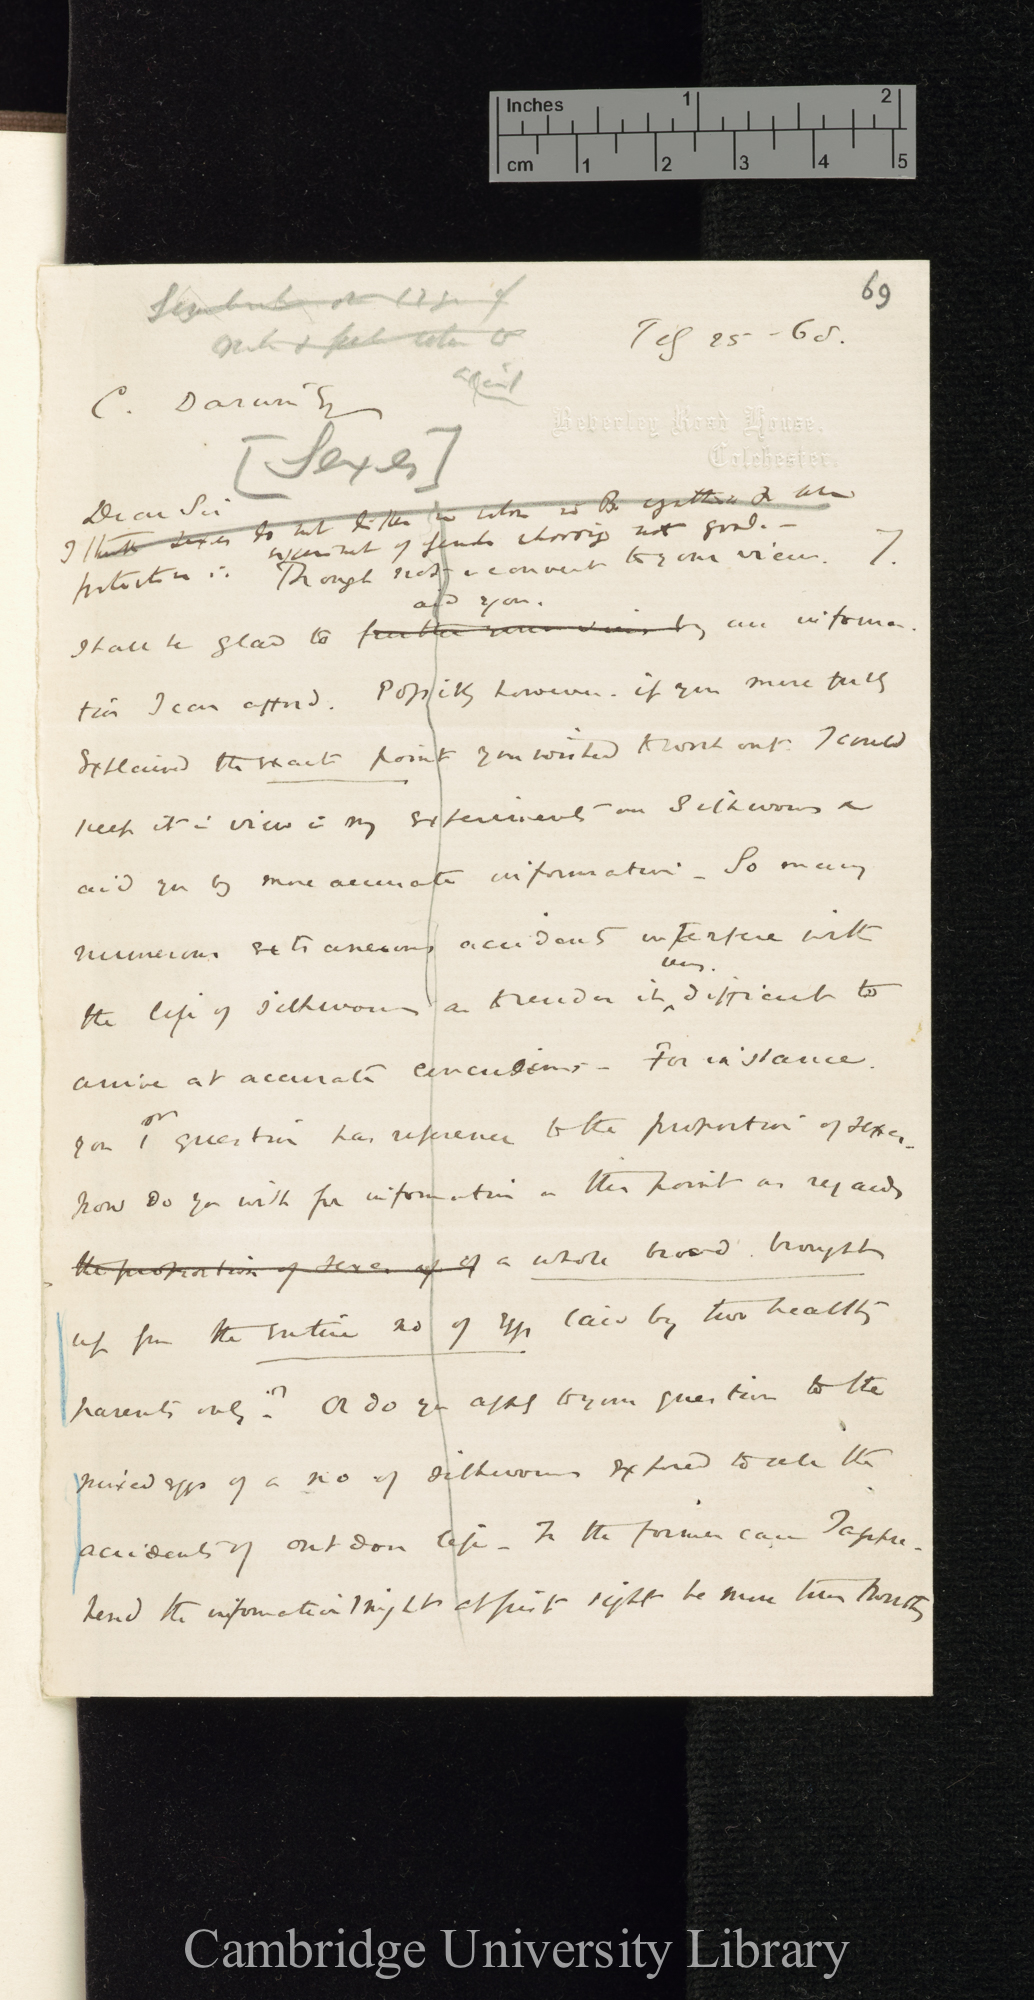 Inches 1 2
cm 1 2 3 4 5
69
Feb 25 - 68.
C. Darwin Esq
Beverley Road House.
Colchester.
[Sexes]
Dear Sir
I think sexes do not differ in colour
account of females choosing not good. -
protection is. Though not a convert to your views. I.
aid you.
shall be glad to by any informa-
tion I can afford. Possibly however. if you more fully
explained the exact point you wished to work out. I could
keep it in view in my experiments on Silkworms &
aid you by more accurate information - So many
numerous extraneous accidents interfere with
very.
the life of silkworms as to render it difficult to
arrive at accurate conclusions - For instance.
you 1st question has reference to the proportion of sexes -
now do you wish for information on this point as regards
the proportion of sexes of of a whole brood brought
up from the entire no of eggs laid by two healthy
parents only? Or do you apply to your question to the
mixed eggs of a no of silkworms exposed to all the
accidents of out door life - In the former case I appre-
hend the information I might at first sight be more trust worthy
Cambridge University Library